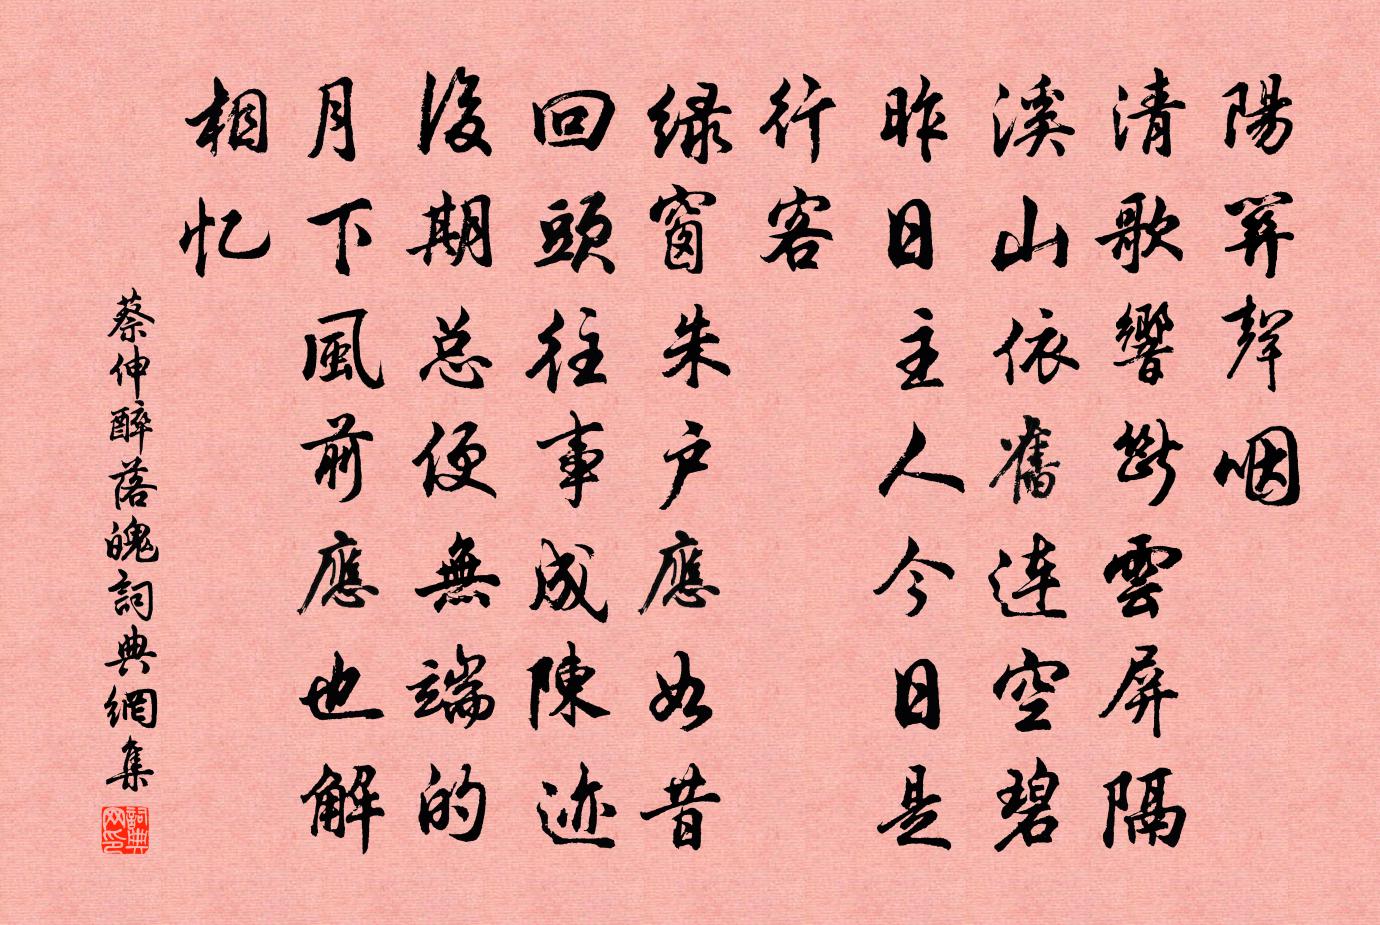 陽關聲咽
清歌響斷雲屏隔
溪山依舊連空碧
昨日主人今日是
行客
綠窗朱户應如昔
回頭往事成陳迹
後期总便無端的
月下風前應也解
相忆
蔡伸醉落魄詞典網集
詞典网印